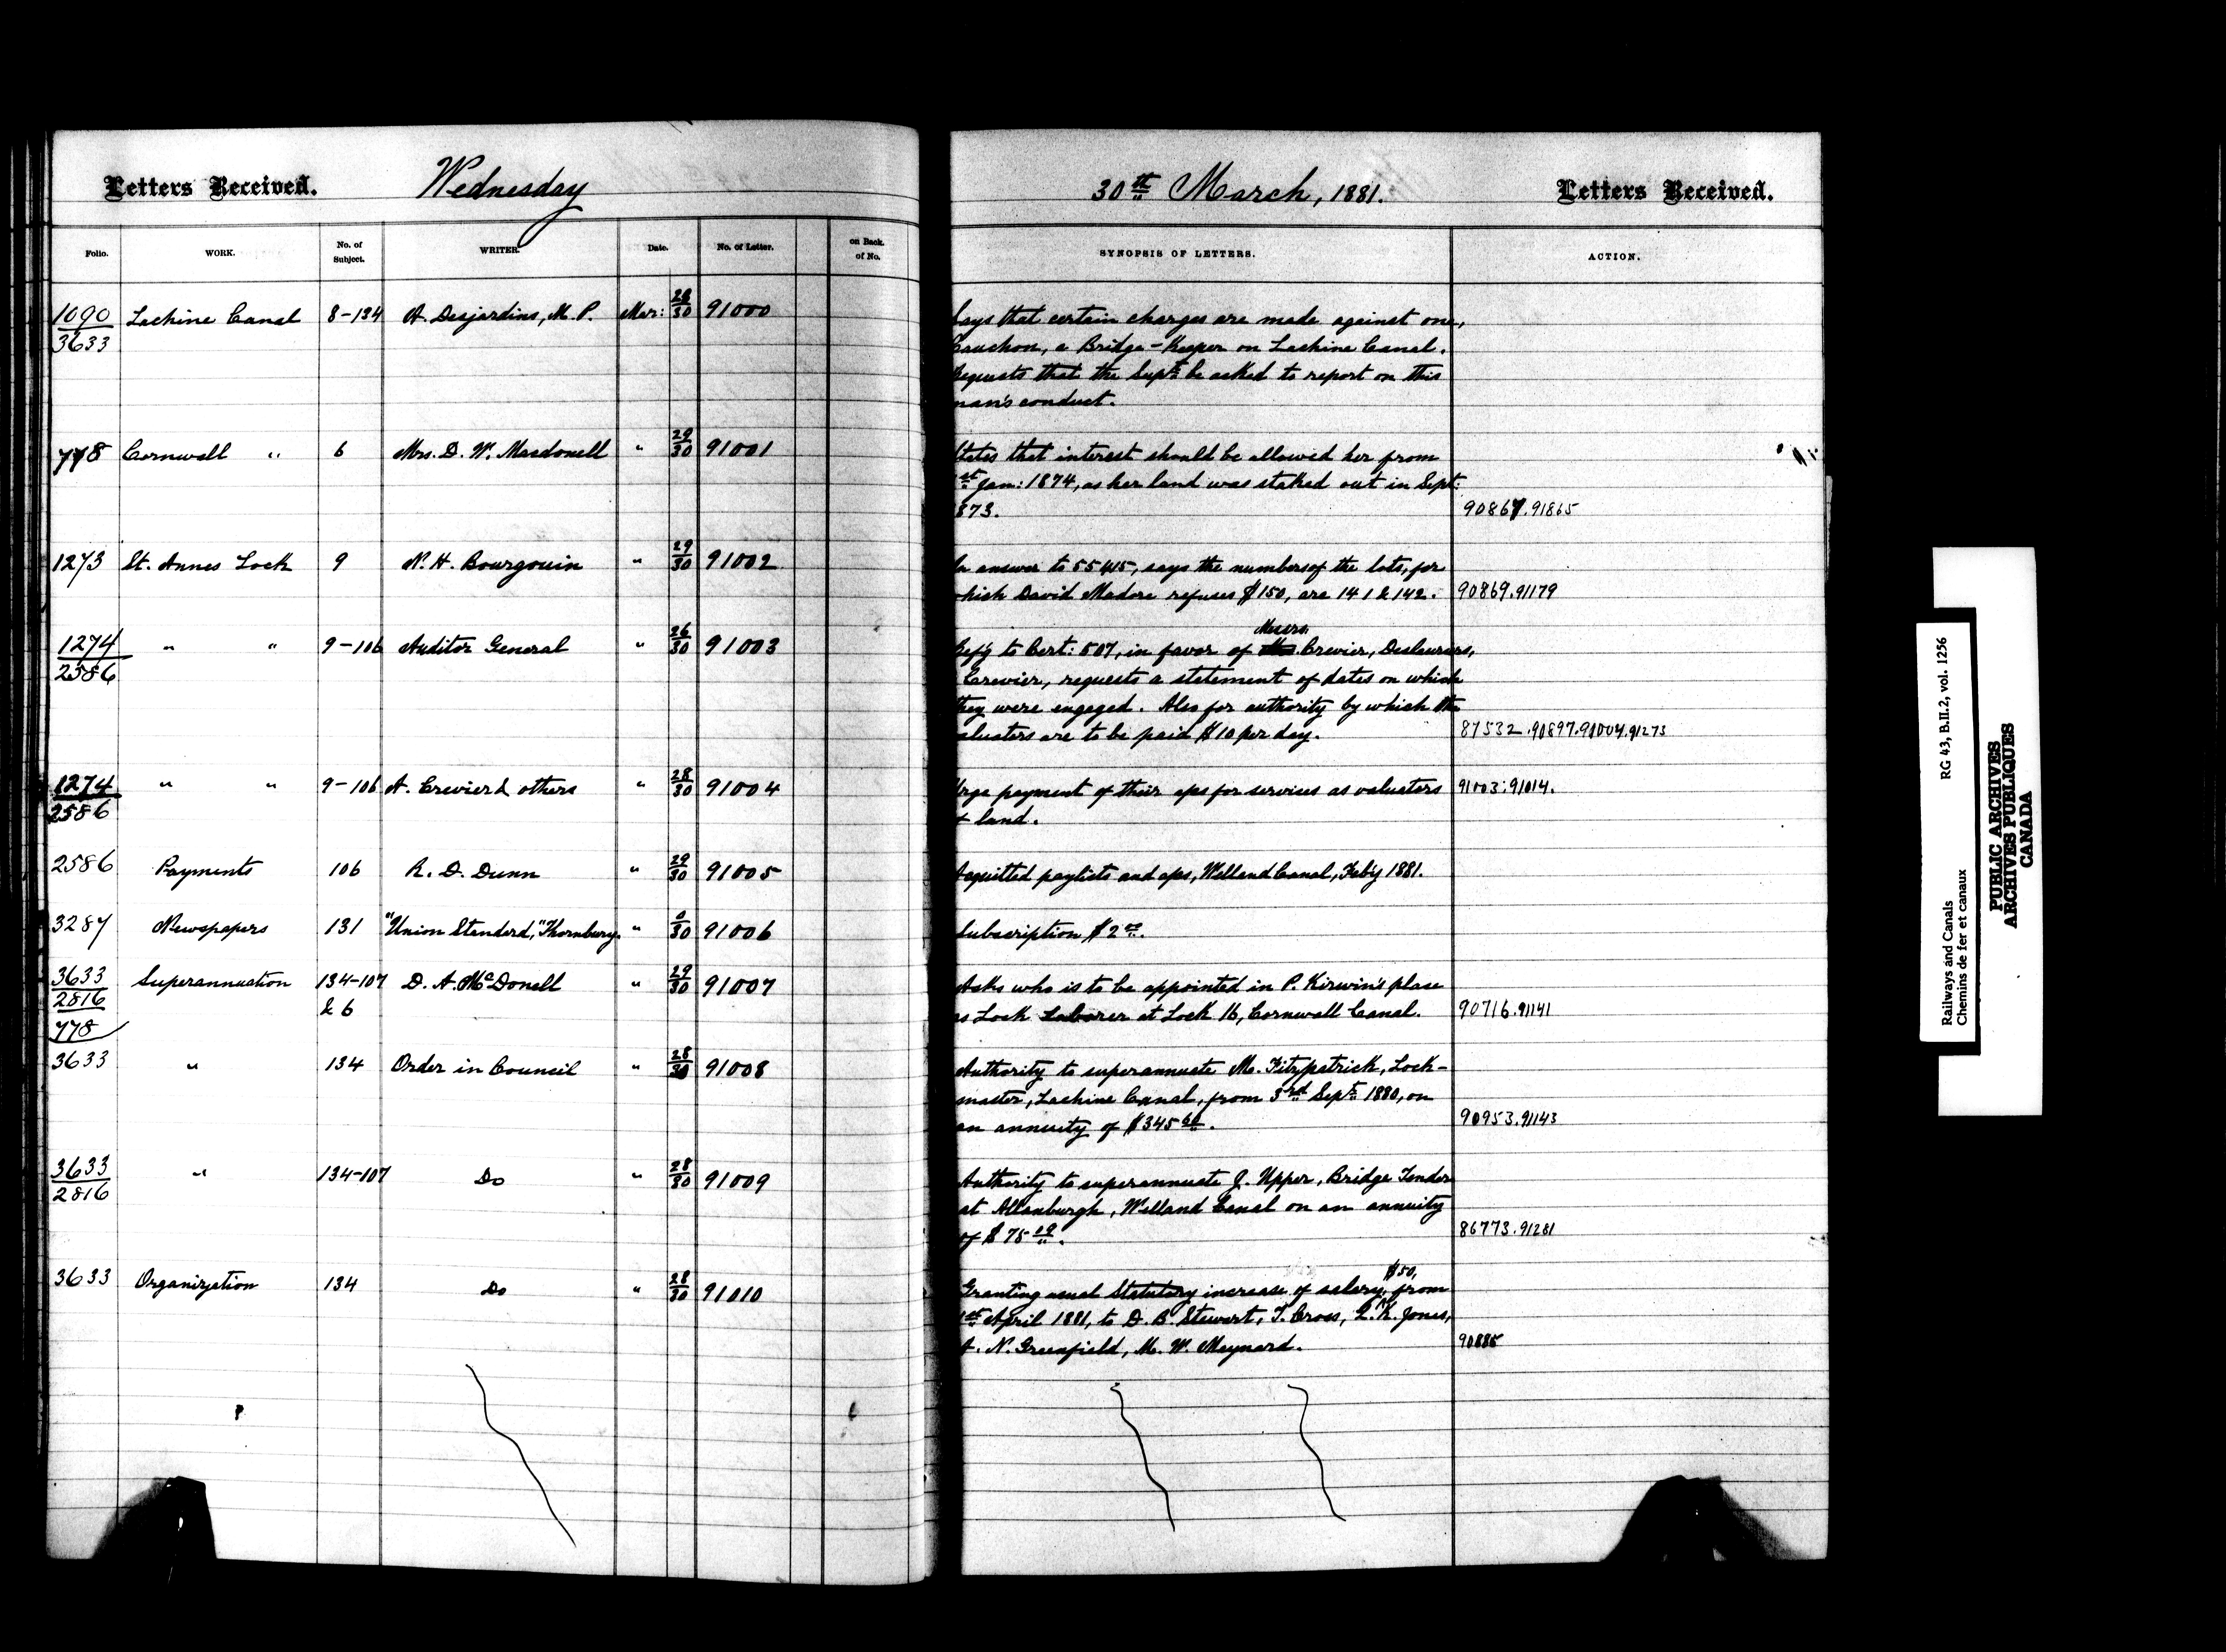 Letters Received. Wednesday 30th March, 1881. Letters Received.
Folio. WORK. No. of Subject. WRITER. Date. No. of Letter. on Back. of No. SYNOPSIS OF LETTERS. ACTION.
1090/3633 Lachine Canal 8-134 A. Desjardins, M.P. Mar: 28/30 91000
Says that certain charges are made against one,
Cauchon, a Bridge-Keeper on Lachine Canal.
Requests that the Supt. be asked to report on this
man's conduct.
778 Cornwall " 6 Mrs. D. W. Macdonell " 29/30 91001
States that interest should be allowed her from
1st Jan: 1874, as her land was staked out in Sept:
1873. 90867.91865
1273 St. Annes Lock 9 N. H. Bourgouin " 29/30 91002
In answer to 55415, says the numbers of the lots, for
which David Madore refuses $150, are 141 & 142. 90869.91179
1274/2586 " " 9-106 Auditor General " 26/30 91003
Refg to Cert: 507, in favor of Messrs. Crevier, Deslauriers,
Crevier, requests a statement of dates on which
they were engaged. Also for authority by which the
valuators are to be paid $10 per day. 87532.90897.91004.91273
1274/2586 " " 9-106 A. Crevier & others " 28/30 91004
Urge payment of their aps for services as valuators 91003:91014.
of land.
2586 Payments 106 R. D. Dunn " 29/30 91005
Acquitted paylists and aps, Welland Canal, Feby 1881.
3287 Newspapers 131 "Union Standard," Thornbury. " 0/30 91006
Subscription $2.00.
3633/2816/778 Superannuation 134-107 & 6 D. A. McDonell " 29/30 91007
Asks who is to be appointed in P. Kirwin's place
as Lock Laborer at Lock 16, Cornwall Canal. 90716.91141
3633 " 134 Order in Council " 28/30 91008
Authority to superannuate M. Fitzpatrick, Lock-
master, Lachine Canal, from 3rd Sept. 1880, on
an annuity of $345.60. 90953.91143
3633/2816 " 134-107 Do " 28/30 91009
Authority to superannuate J. Upper, Bridge Tender
at Allanburgh, Welland Canal on an annuity
of $75. 86773.91281
3633 Organization 134 Do " 28/30 91010
Granting usual Statutory increase of salary, $50, from
1st April 1881, to D. B. Stewart, T. Cross, L. K. Jones,
A. N. Greenfield, M. W. Maynard. 90885
Railways and Canals RG 43, B.II.2, vol. 1256
Chemins de fer et canaux
PUBLIC ARCHIVES
ARCHIVES PUBLIQUES
CANADA